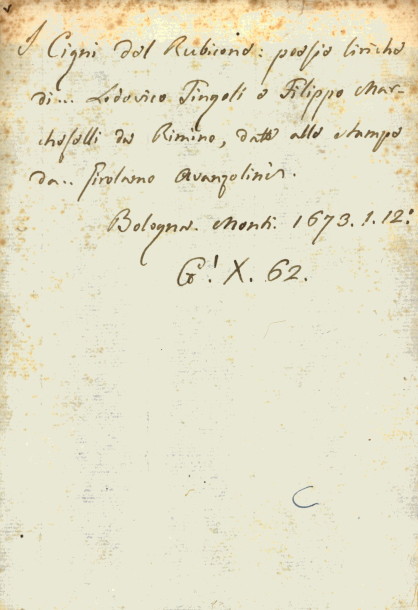 I Cigni del Rubicone: poesie liriche
di... Lodovico Tingoli e Filippo Mar-
cheselli da Rimino, date alle stampe
da.. Girolamo Avanzolini.
Bologna. Monti. 1673. 1. 12.°
G.! X. 62.
C